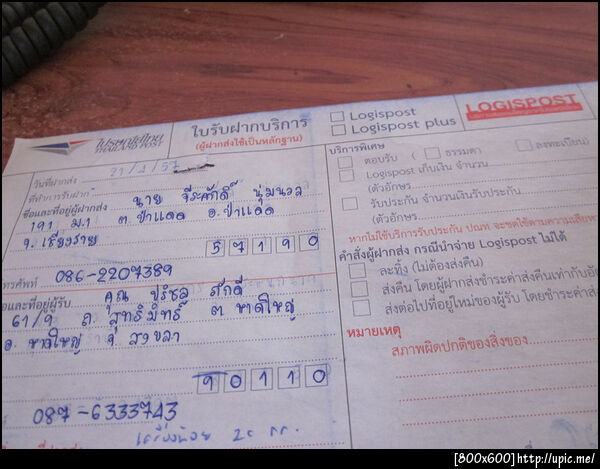 ไปรษณีย์ไทย
THAILAND POST
ใบรับฝากบริการ
(ผู้ฝากส่งใช้เป็นหลักฐาน)
Logispost
Logispost plus
LOGISPOST
วันที่ฝากส่ง 21/4/57
ที่ทำการรับฝาก
ชื่อและที่อยู่ผู้ฝากส่ง นาย จีระศักดิ์ นุ่มนวล
191 ม.1 ต.ป่าแดด อ.ป่าแดด
จ. เชียงราย 57190
โทรศัพท์ 086-2207389
ชื่อและที่อยู่ผู้รับ คุณ ภักดี
61/9 ถ. ต หาดใหญ่
อ. หาดใหญ่ จ สงขลา
90110
087-6333743
20 กก.
บริการพิเศษ
ตอบรับ ( ธรรมดา ลงทะเบียน)
Logispost เก็บเงิน จำนวน
(ตัวอักษร
รับประกัน จำนวนเงินรับประกัน
(ตัวอักษร
หากไม่ใช้บริการรับประกัน ปณท จะชดใช้ตามความเสียหา
คำสั่งผู้ฝากส่ง กรณีนำจ่าย Logispost ไม่ได้
ละทิ้ง (ไม่ต้องส่งคืน)
ส่งคืน โดยผู้ฝากส่งชำระค่าส่งคืนเท่ากับอั
ส่งต่อไปที่อยู่ใหม่ของผู้รับ โดยชำระค่าส่
หมายเหตุ
สภาพผิดปกติของสิ่งของ
[800x600]http://upic.me/